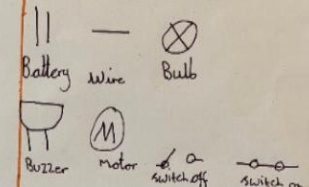 Battery Wire Bulb
M
Buzzer Motor Switch off Switch on